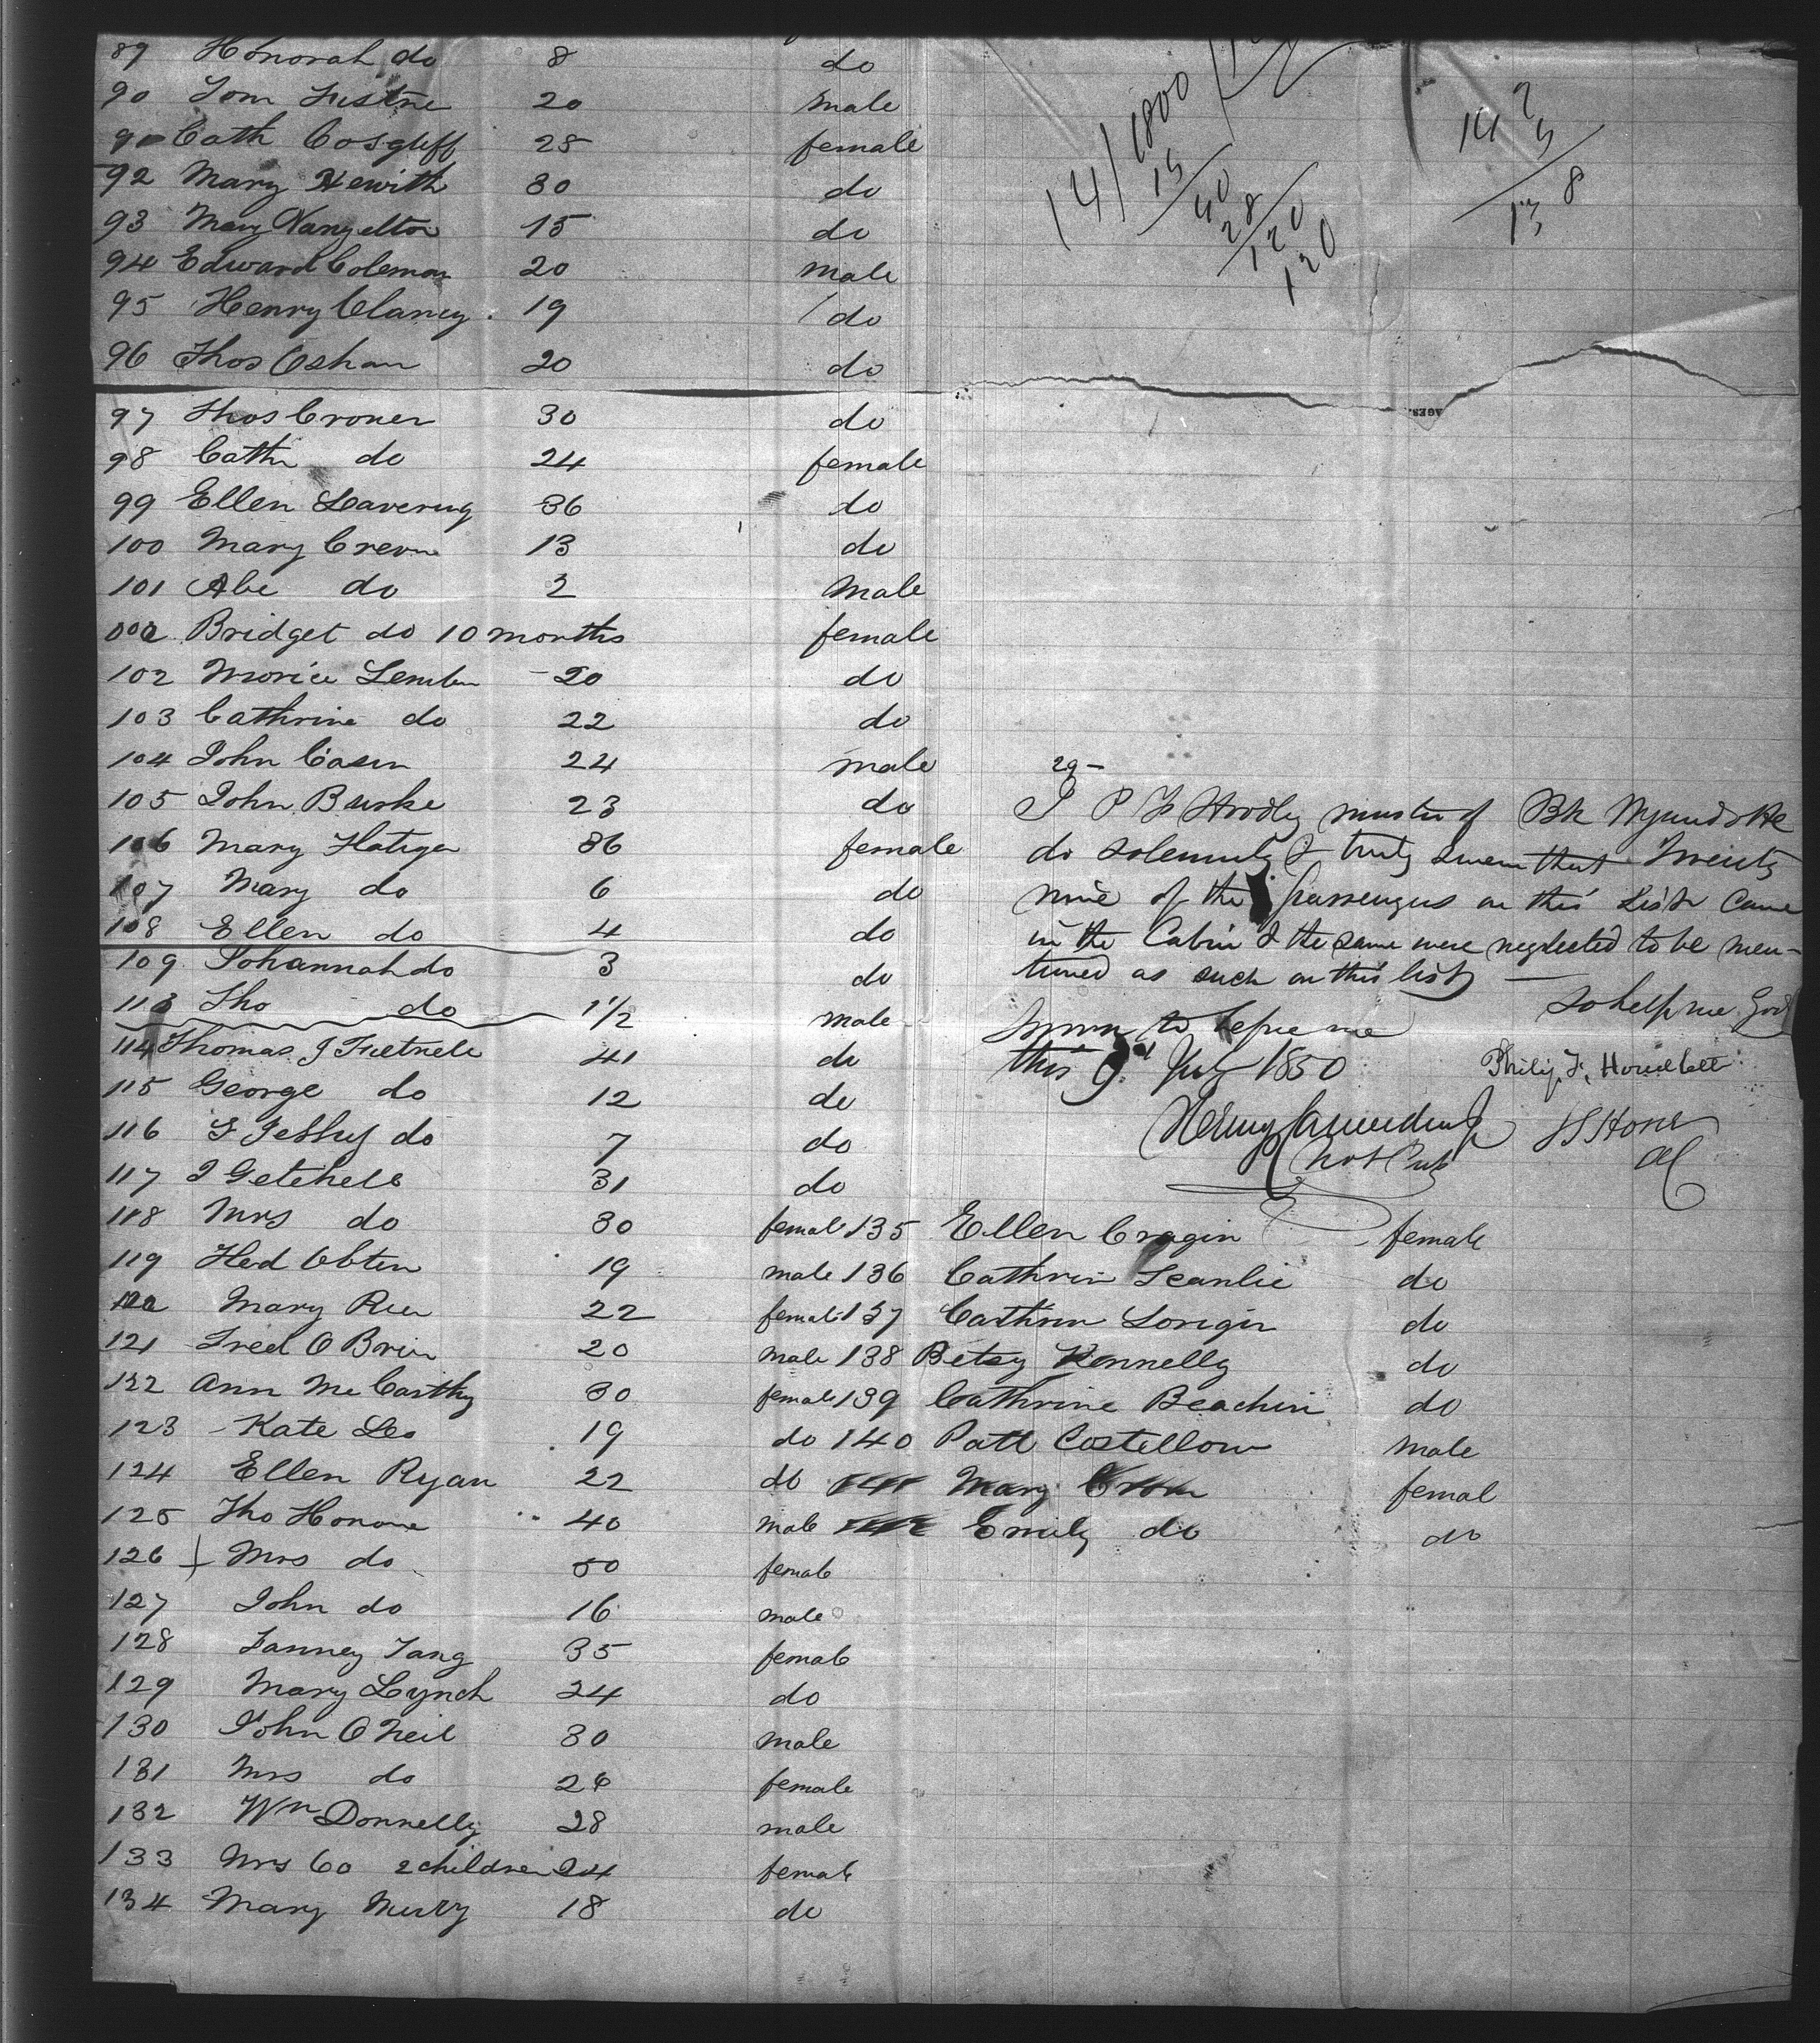 89 Honorah do 8 do
90 Tom 20 male
91 Cath Cosgliff 28 female
92 Mary Hewith 30 do
93 Mary 15 do
94 Edward Coleman 20 male
95 Henry Clancy 19 do
96 Thos Oshan 20 do
97 Thos Croner 30 do
98 Cath do 24 female
99 Ellen Leavering 36 do
100 Mary 13 do
101 Abe do 2 male
Bridget do 10 months female
102 20 do
103 Cathrine do 22 do
104 John Casen 24 male
105 John Burke 23 do
106 Mary 36 female
107 Mary do 6 do
108 Ellen do 4 do
109 Johannah do 3 do
113 Tho do 1 1/2 male
114 Thomas J 41 do
115 George do 12 do
116 do 7 do
117 J Getchell 31 do
118 Mrs do 30 female
119 19 male
120 Mary 22 female
121 Fred O Brien 20 male
122 Ann McCarthy 30 female
123 Kate Leo 19 do
124 Ellen Ryan 22 do
125 Tho Honone 40 male
126 Mrs do 50 female
127 John do 16 male
128 Fanney Tang 35 female
129 Mary Lynch 24 do
130 John O Neil 30 male
131 Mrs do 26 female
132 Wm Donnelly 28 male
133 Mrs Co 2 children 24 female
134 Mary 18 do
14/1800
15
40
28
120
120
138
AGES.
29-
I P master of Bk
do solemnly & truly swear that Twenty
nine of the passengers on this List came
in the Cabin & the same were neglected to be men-
tioned as such on this list
So help me God
Sworn to before me
this 9th July 1850
Philip F.
Henry
Not Pub
135 Ellen Cragin female
136 Cathrin Scanlie do
137 Cathrin Lorigin do
138 Betsy Kennelly do
139 Cathrine Beachin do
140 Patt Costellow male
Mary female
Emily do do